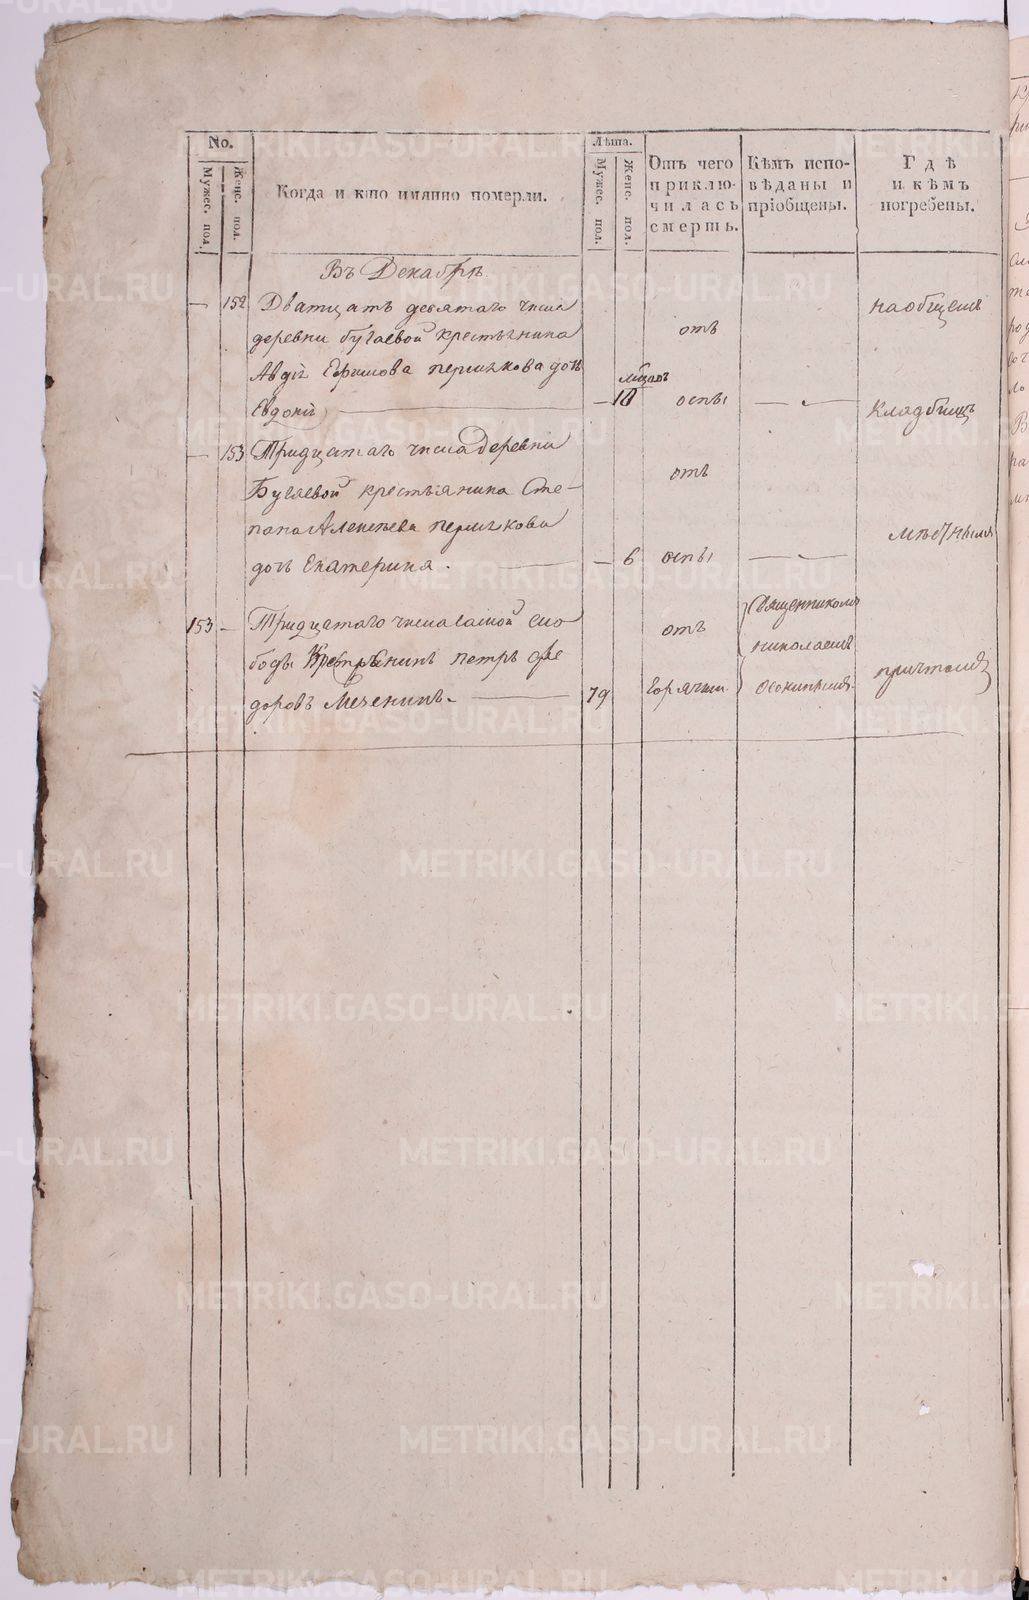 No.
Мужес. пол.
Женс. пол.
Когда и кто имянно померли.
Лѣта.
Мужес. пол.
Женс. пол.
Отъ чего приклю-
чилась
смерть.
Кѣмъ испо-
вѣданы и
пріобщены.
Гдѣ
и кѣмъ
погребены.
Въ Декабрѣ
— 152 Дватцать девятаго числа
деревни бугаевой крестьянина
Авдія Ефимова першкова дочь
Евдокія
месяцовъ
— 10
отъ
оспы
—
на общемъ
кладбищѣ
— 153 Тридцатаго числа деревни
Бугаевой крестьянина Сте-
пана Алексѣева першкова
дочь Екатерина.
— 6
отъ
оспы
—
мѣстнымъ
153 — Тридцатаго числа самой сло
боды Крестьянинъ петръ Фе
доровъ Меченинъ.
79
отъ
Горячки
Священникомъ
николаемъ
причтомъ
METRIKI.GASO-URAL.RU